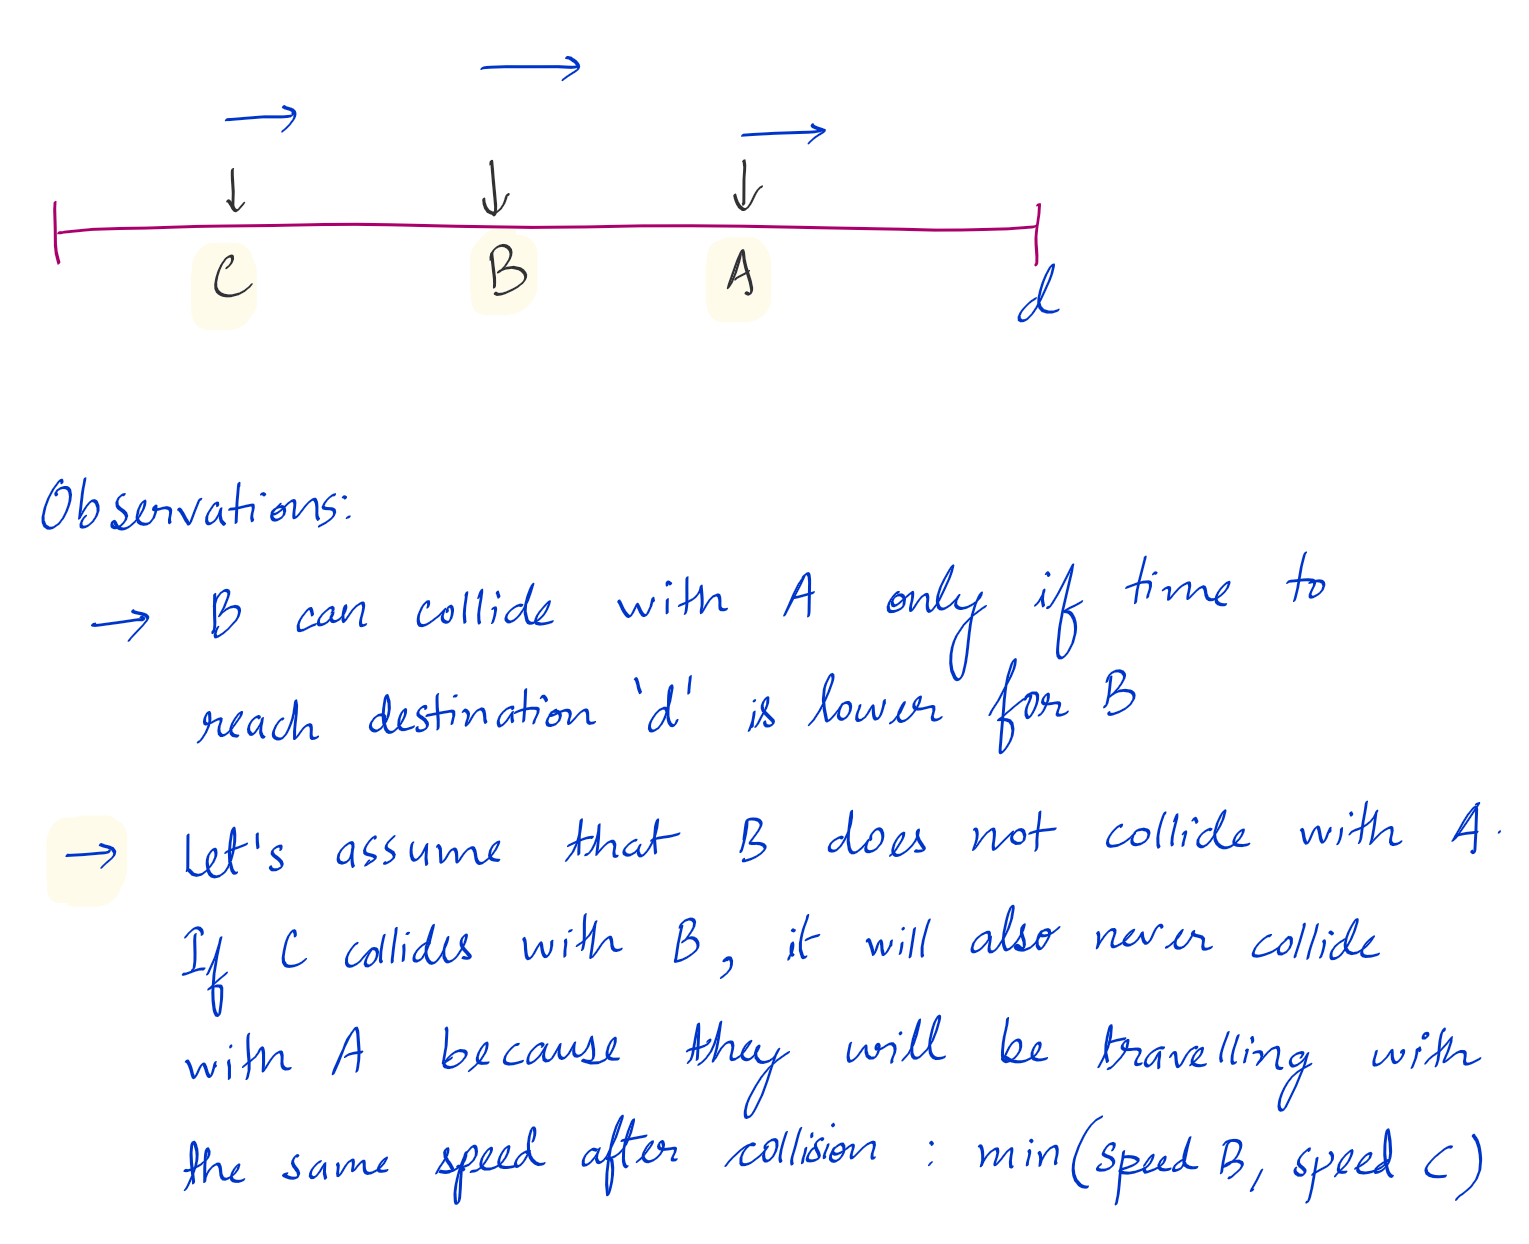 C B A
d
Observations:
→ B can collide with A only if time to
reach destination 'd' is lower for B
→ Let's assume that B does not collide with A.
If C collides with B, it will also never collide
with A because they will be travelling with
the same speed after collision : min(speed B, speed C)